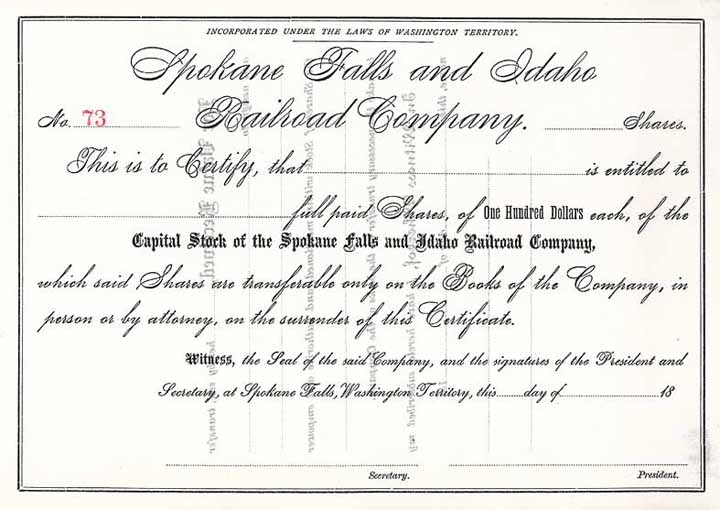 INCORPORATED UNDER THE LAWS OF WASHINGTON TERRITORY.
Spokane Falls and Idaho
No. 73 Railroad Company. Shares.
This is to Certify, that is entitled to
full paid Shares, of One Hundred Dollars each, of the
Capital Stock of the Spokane Falls and Idaho Railroad Company,
which said Shares are transferable only on the Books of the Company, in
person or by attorney, on the surrender of this Certificate.
Witness, the Seal of the said Company, and the signatures of the President and
Secretary, at Spokane Falls, Washington Territory, this day of 18
Secretary. President.